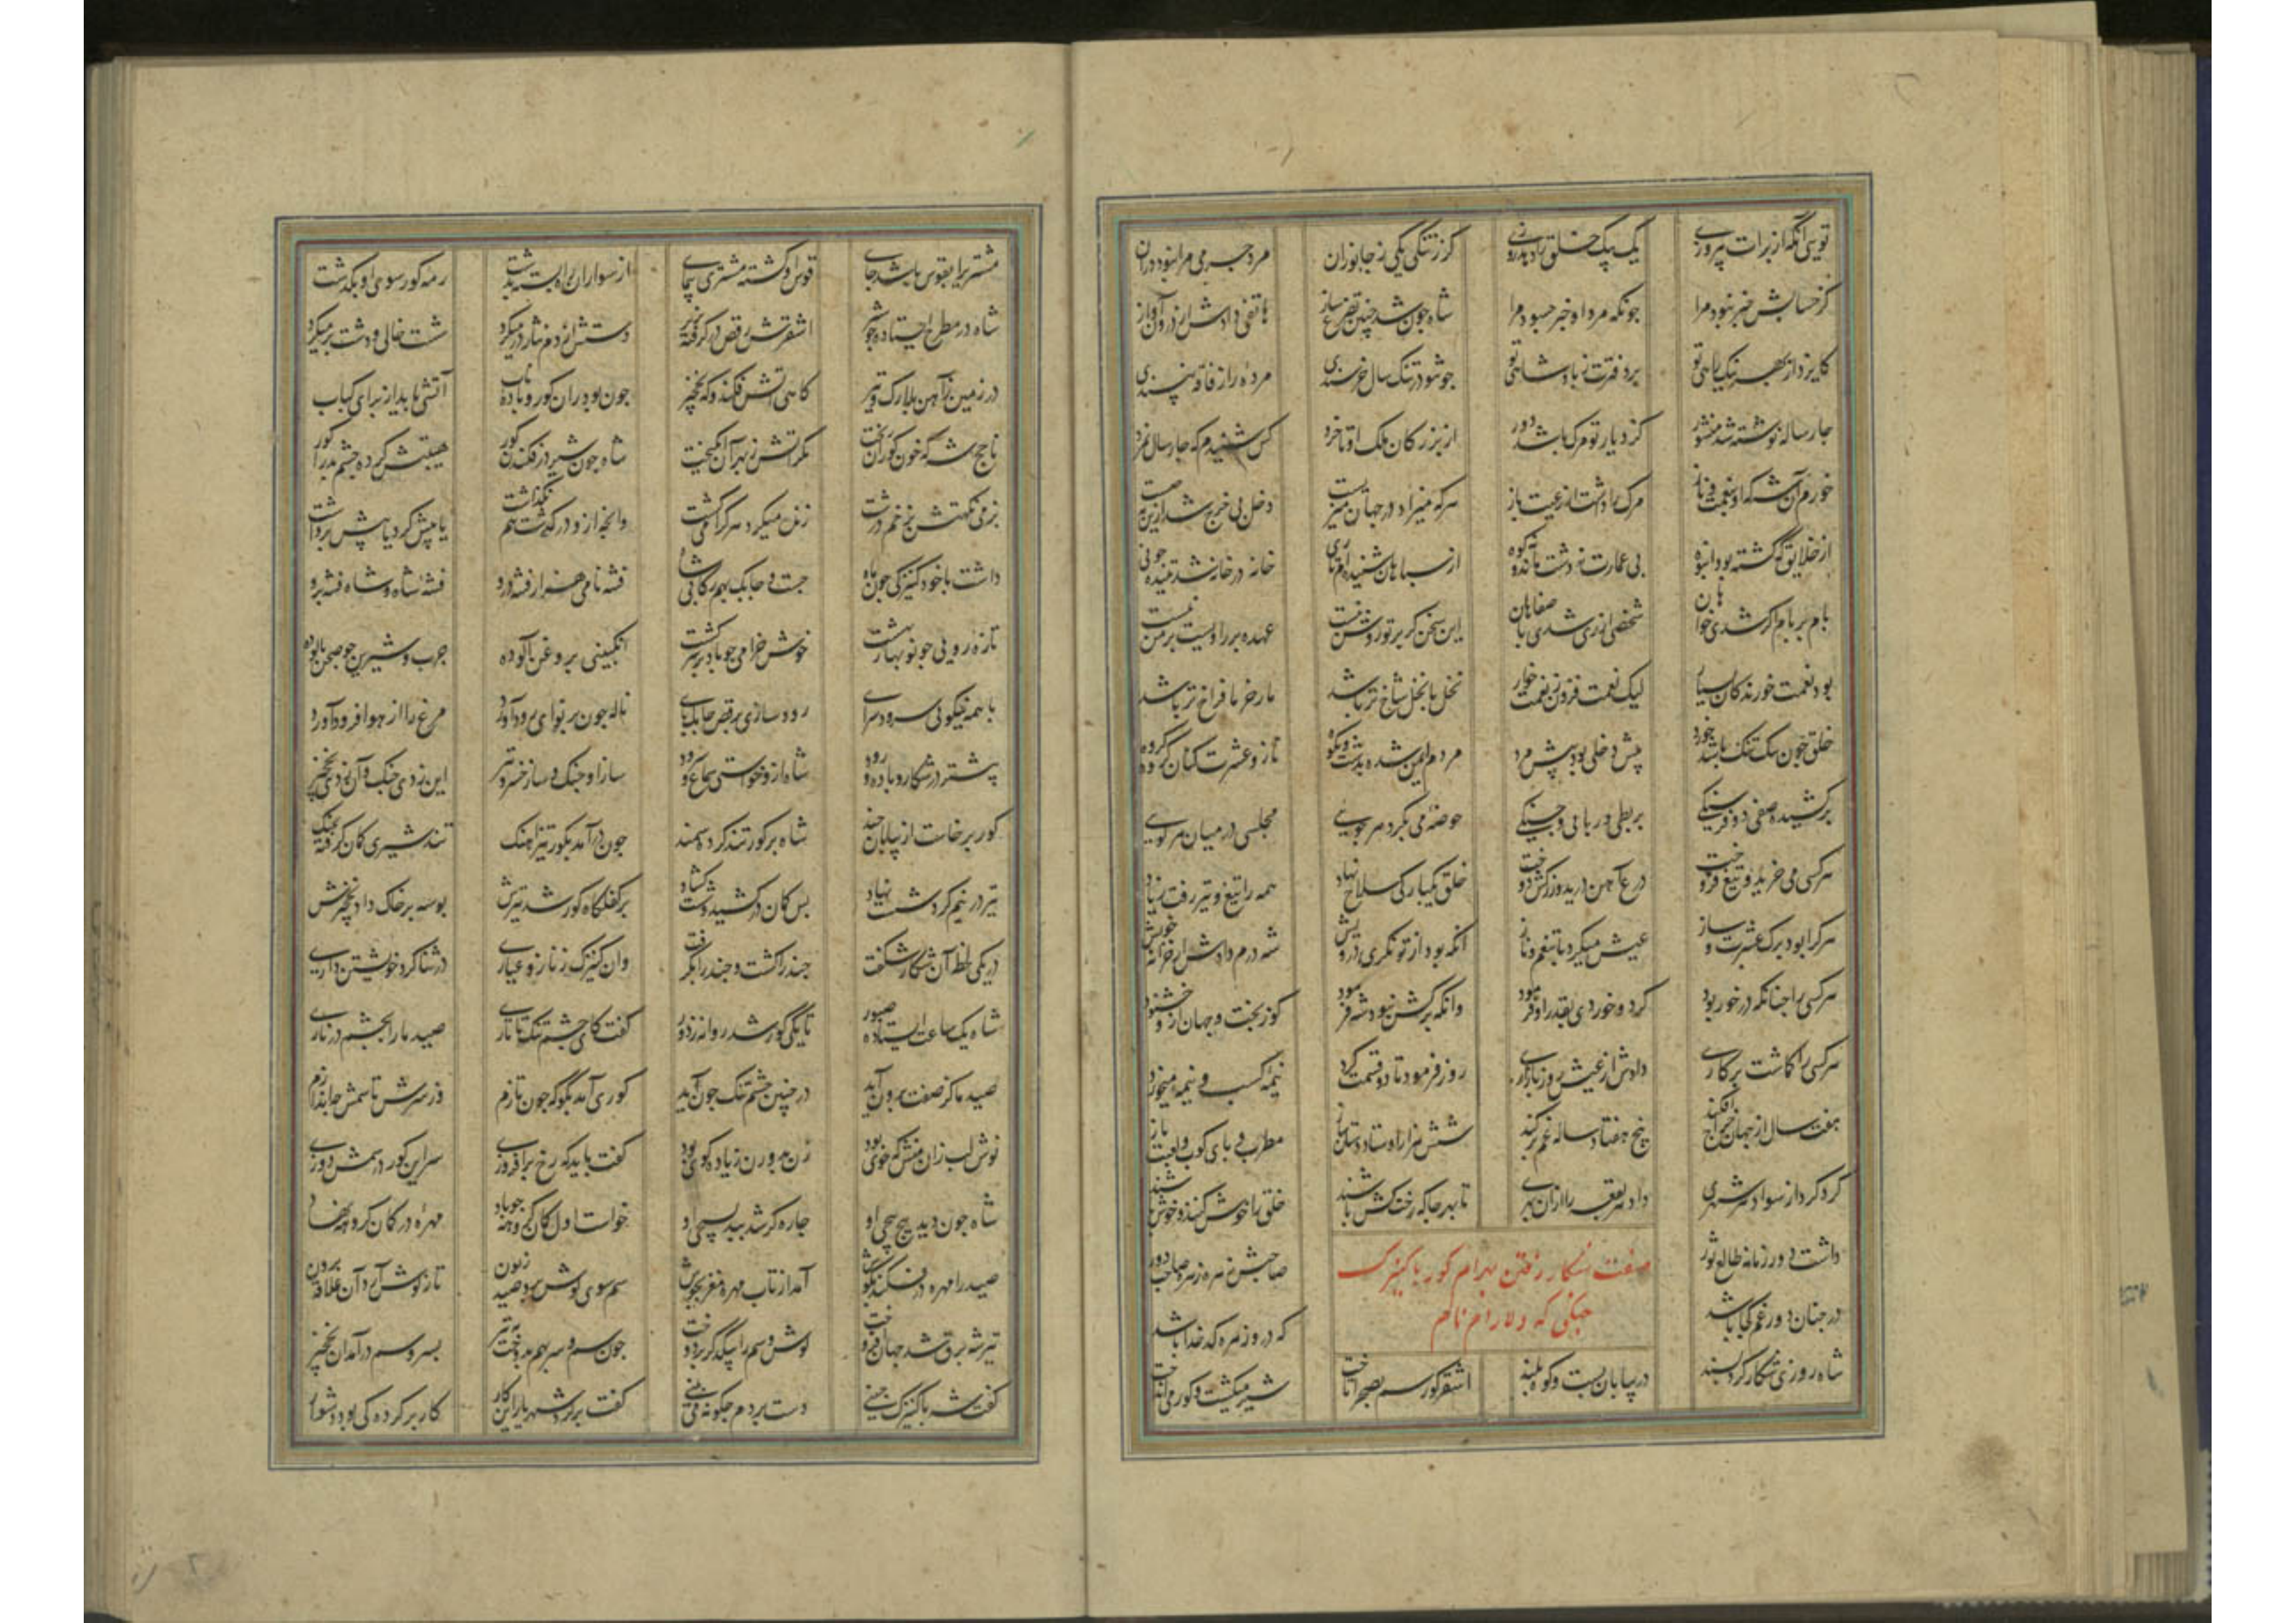 تویی آنکه از برات پیروزی یک بیک خلق را دهی روزی کز تنگی یکی ز جانوران مرد جرمی مرا نبود در آن
کز حسابش خبر نبود مرا چونکه مرد او خبر چه سود مرا شاه چون شد چنین تضرع ساز هاتفی دادش از درون آواز
کایزد از بهر نیک رایی تو برد فترت ز پادشاهی تو چو تو در تنگ سال خرسندی مرده را ز فاقه نپسندی
چار ساله نوشته شد منشور کز دیار تو مرگ باشد دور از بزرگان ملک او تا خرد کس شنیدم که چار سال نمرد
خرم آن شه که او بنعمت و ناز مرگ را داشت از رعیت باز هرکه میزاد در جهان میزیست دخل بی خرج شد ازین به چیست
از خلایق که گشته بود انبوه بی عمارت نه دشت ماند نه کوه از سپاهان شنیده ام تا ری خانه در خانه شد تنیده چو نی
بام بر بام اگر شدی خواهان شخصی از ری شدی باصفاهان این سخن گر بر تو روشن نیست عهده بر راویست بر من نیست
بود نعمت خورندگان بسیار لیک نعمت فزون ز نعمت خوار نخل با نخل شاخ تر باشد خار خرما فراخ تر باشد
خلق چون تنگ تنگ باشد خورد بیش دخلی بود بپیش مرد مردم ایمن شده بدشت و بکوه ناز و عشرت کنان گروه گروه
برکشیده صفی دو فرسنگی بربطی و ربابی و چنگی حوضه می بگرد هر جویی مجلسی در میان هر کویی
هرکسی می خرید و تیغ فروخت درع آهن درید و زرکش دوخت خلق یکبارگی سلاح نهاد همه را تیغ و تیر رفت ز یاد
هرکرا بود برگ عشرت و ساز عیش میکرد با تنعم و ناز آنکه بود از توانگری درویش شه درم دادش از خزانه خویش
هرکسی را چنانکه در خور بود کرد و خوردی بقدر او فرمود وانکه برگش نبود شه فرمود کو ز بخت و جهان ازو خشنود
هرکسی را گماشت بر کاری دادش از عیش روز بازاری روز فرمود تا دو قسمت کرد نیمه کسب و نیمه میخورد
هفت سال از جهان خراج افکند بیخ هفتاد ساله غم برکند شش هزار اوستاد دستان ساز مطرب و پای کوب و لعبت باز
گرد کرد از سواد هر شهری داد هر بقعه را از آن بهری تا بهر جا که رخت کش باشند خلق را خوش کنند و خوش باشند
داشت دور زمانه طالع ثور صاحبش زهره زهره صاحب دور
صفت شکار رفتن بهرام گور با کنیزک
چنگی که دلارام نام
در چنان دور غم کجا باشد که درو زهره کدخدا باشد
شاه روزی شکار کرد پسند در بیابان پست و کوه بلند اشقر گورسم بصحرا تاخت شیر میکشت و گور می انداخت
مشتریرا بقوس باشد جای قوس او گشته مشتری پیمای از سواران پره بسته بدشت رمه گور سوی او بگذشت
شاه در مطرح ایستاده چو شیر اشقرش رقص درگرفته بزیر دستش از زه نثار در میکرد شست خالی و دشت پر میکرد
در زمین ز آهن بلارک و تیر گاهی آتش فکند و گه نخچیر چون بود ران گور و باده ناب آتشی باید از برای کباب
ناچخ شه که خون گوران ریخت مگر آتش ز بهر آن انگیخت شاه چون شیر در فکندن گور هیبتش کرده چشم بد را کور
نرمی نگهتش ز خم درشت زنده میکرد هر کرا می کشت وانچه ازو درگذشت هم نگذاشت یا پیش کرد یا پیش برداشت
داشت با خود کنیزکی چون ماه چست و چابک بهم رکابی شاه فتنه نامی هزار فتنه درو فتنه شاه و شاه فتنه برو
تازه رویی چو نو بهار بهشت خوش خرامی چو باد بر سر کشت انگبینی بروغن آلوده چرب و شیرین چو صحن پالوده
با همه نیکویی سرود سرای رود سازی برقص چابک پای ناله چون بر نوای رود آورد مرغ را از هوا فرود آورد
بیشتر در شکار و باده و رود شاه ازو خواستی سماع و سرود ساز او چنگ و ساز خسرو تیر این زدی چنگ و آن زدی نخچیر
گور برخاست از بیابان چند شاه بر گور تند کرد سمند چون درآمد بگور تیز آهنگ تند شیری کمان گرفته بچنگ
تیر در نیم گرد شست نهاد پس کمان درکشید و شست گشاد بر کفلگاه گور شد تیرش بوسه بر خاک داد نخچیرش
در یکی لحظه آن شکار شگفت چند را کشت و چند را بگرفت وان کنیزک ز ناز و عیاری در ثنا کرد خویشتن داری
شاه یک ساعت ایستاده صبور تا یکی گور شد روانه ز دور گفت کای چشم تنگ تاتاری صید ما را بچشم در ناری
صید ما کز صفت برون آید در چنین چشم تنگ چون آید گوری آمد بگو که چون تازم وز سرش تا سمش چه اندازم
نوش لب زان منش که خوی بود زن بد و زن زیاده گوی بود گفت باید که رخ برافروزی سر این گور در سمش دوزی
شاه چون دید پیچ پیچی او چاره گر شد ببد بسیچی او خواست اول کمان گروهه چو باد مهره در کمان گروهه نهاد
صید را مهره درفکند بگوش آمد از تاب مهره مغز بجوش سم سوی گوش برد صید زبون تا ز گوش آرد آن علاقه برون
تیر شه برق شد جهان افروخت گوش و سم را بیکدگر بر دوخت چون سم و سر بهم بدوخت به تیر بسر و سم درآمد آن نخچیر
گفت شه با کنیزک چینی دست بردم چگونه می بینی گفت پر کرد شهریار این کار کار پر کرده کی بود دشوار